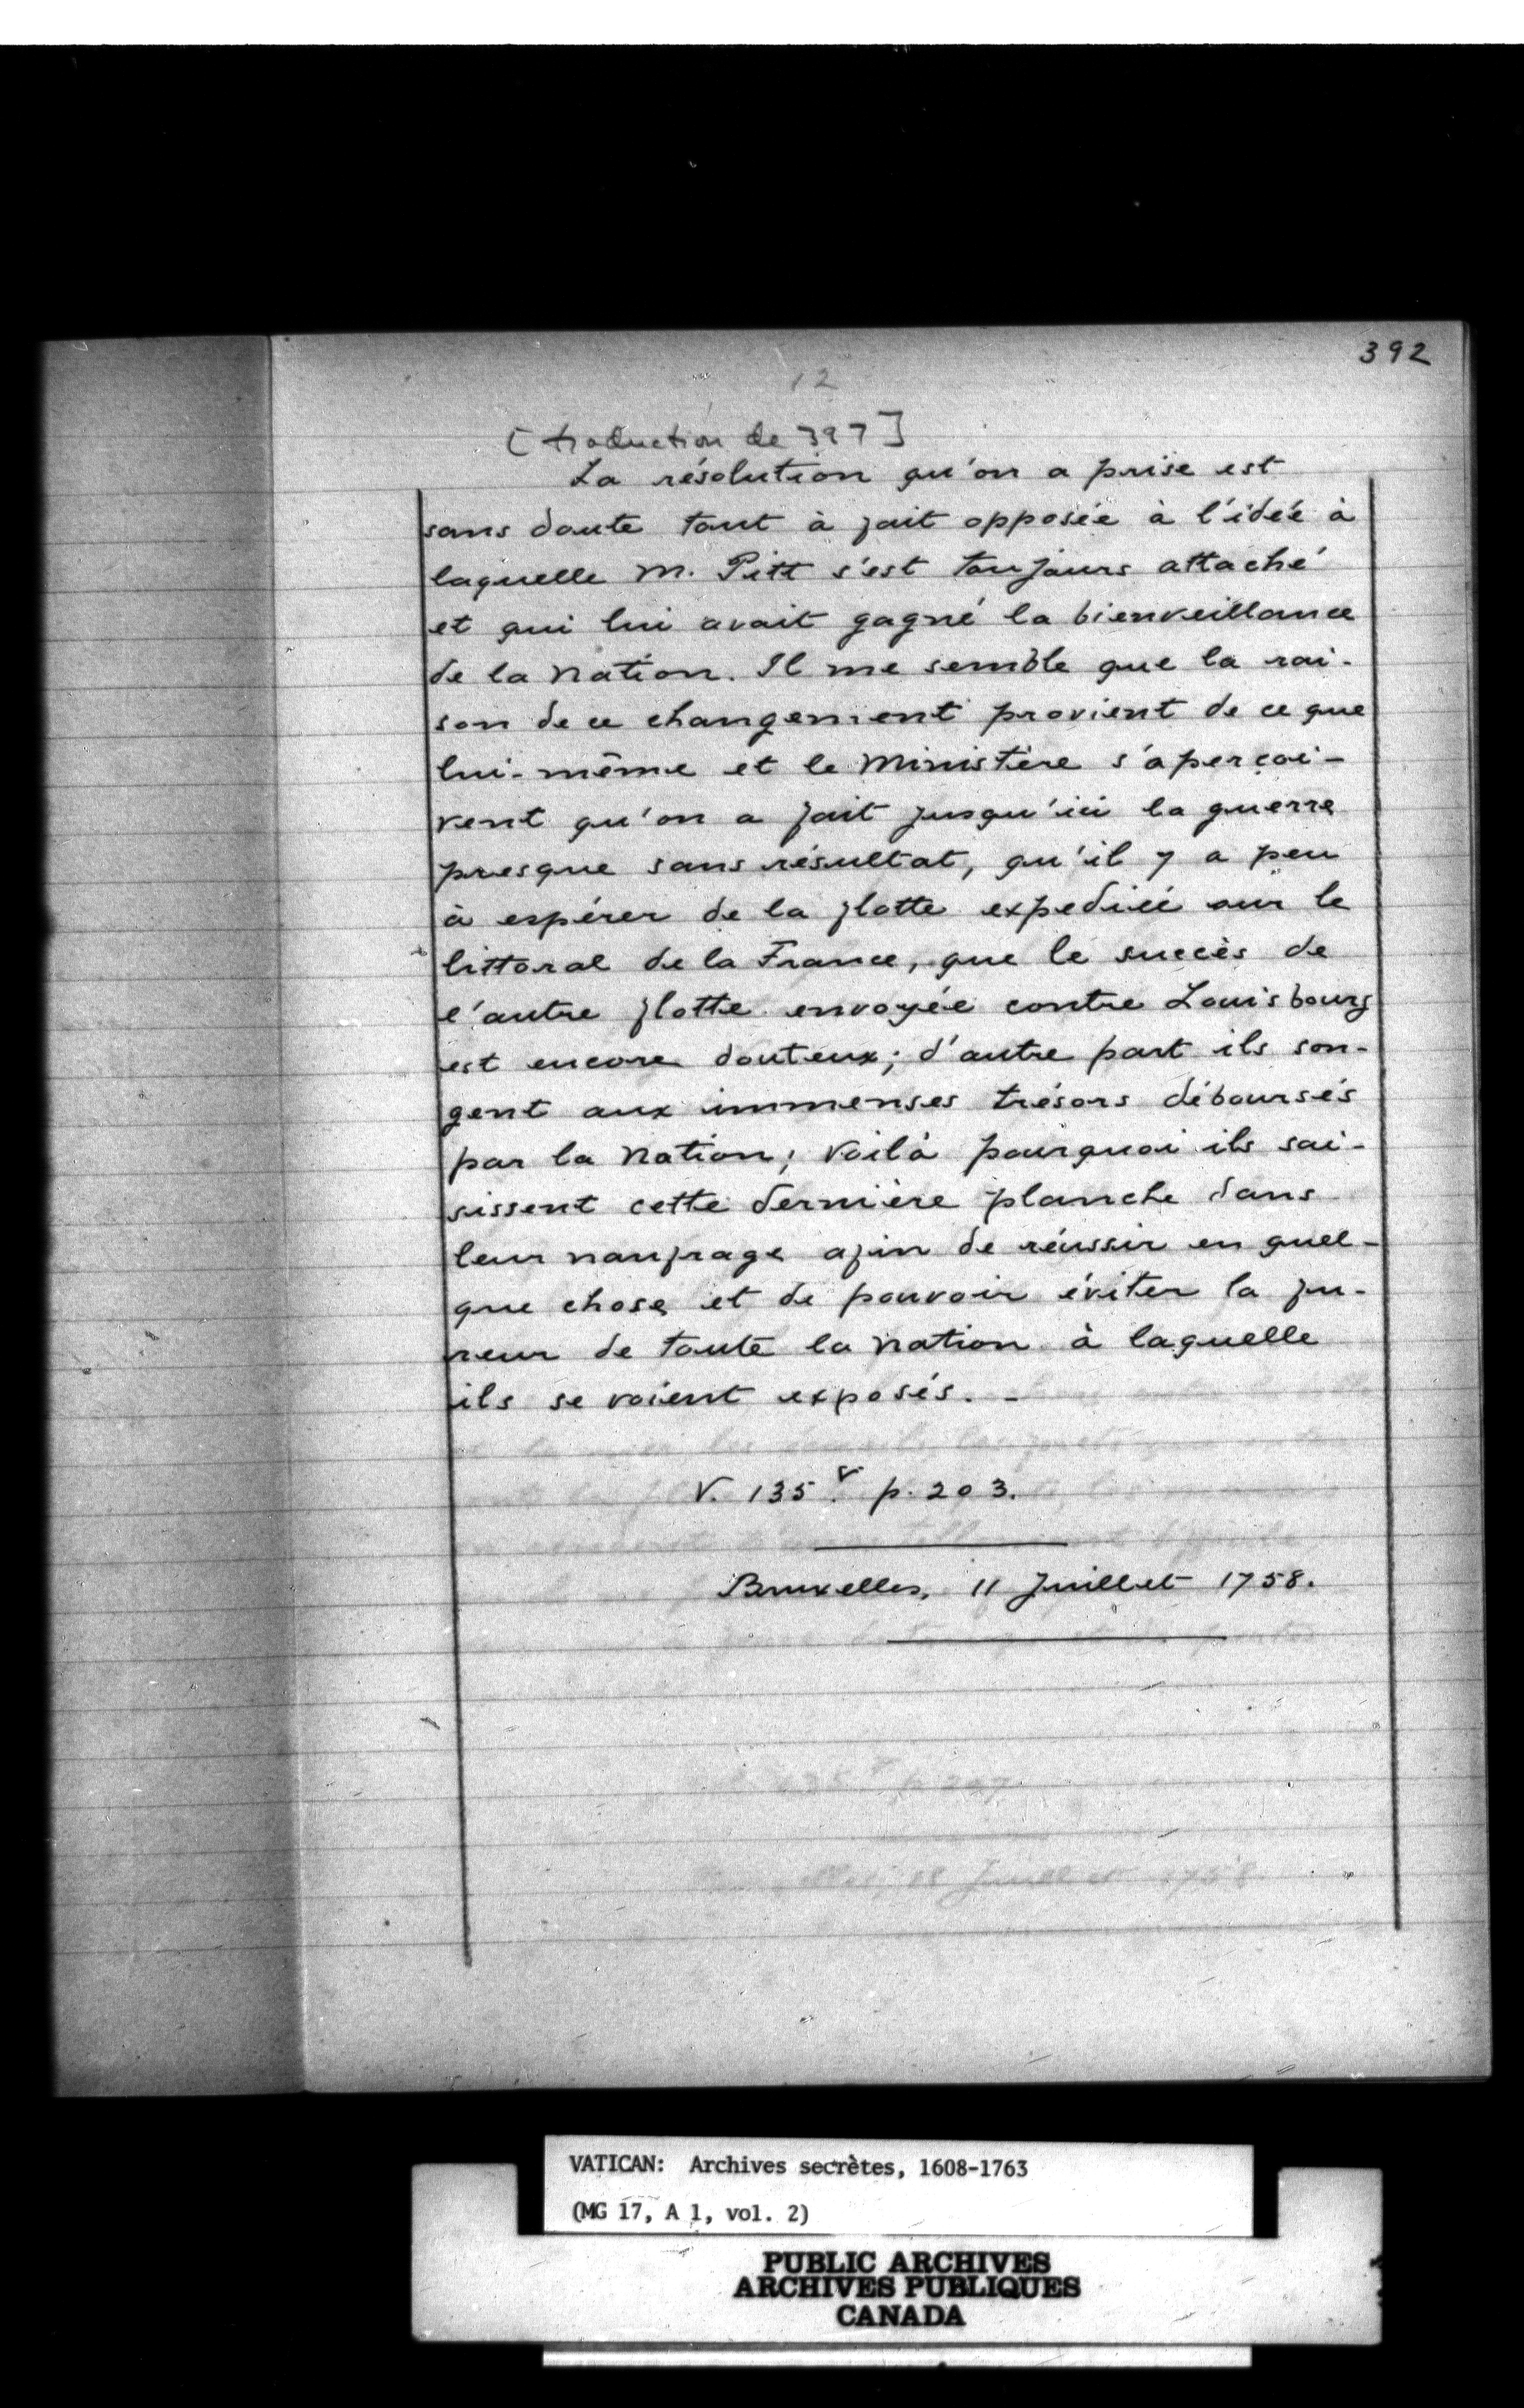 392
12
[traduction de 397]
La résolution qu'on a prise est
sans doute tout à fait opposée à l'idée à
laquelle M. Pitt s'est toujours attaché
et qui lui avait gagné la bienveillance
de la Nation. Il me semble que la rai-
son de ce changement provient de ce que
lui-même et le Ministère s'aperçoi-
vent qu'on a fait jusqu'ici la guerre
presque sans résultat, qu'il y a peu
à espérer de la flotte expediée sur le
littoral de la France, que le succès de
l'autre flotte envoyée contre Louisbourg
est encore douteux; d'autre part ils son-
gent aux immenses trésors déboursés
par la Nation; Voilà pourquoi ils sai-
sissent cette dernière planche dans
leur naufrage afin de réussir en quel-
que chose et de pouvoir éviter la fu-
reur de toute la Nation à laquelle
ils se voient exposés. -
V. 135.v p. 203.
Bruxelles, 11 Juillet 1758.
VATICAN: Archives secrètes, 1608-1763
(MG 17, A 1, vol. 2)
PUBLIC ARCHIVES
ARCHIVES PUBLIQUES
CANADA